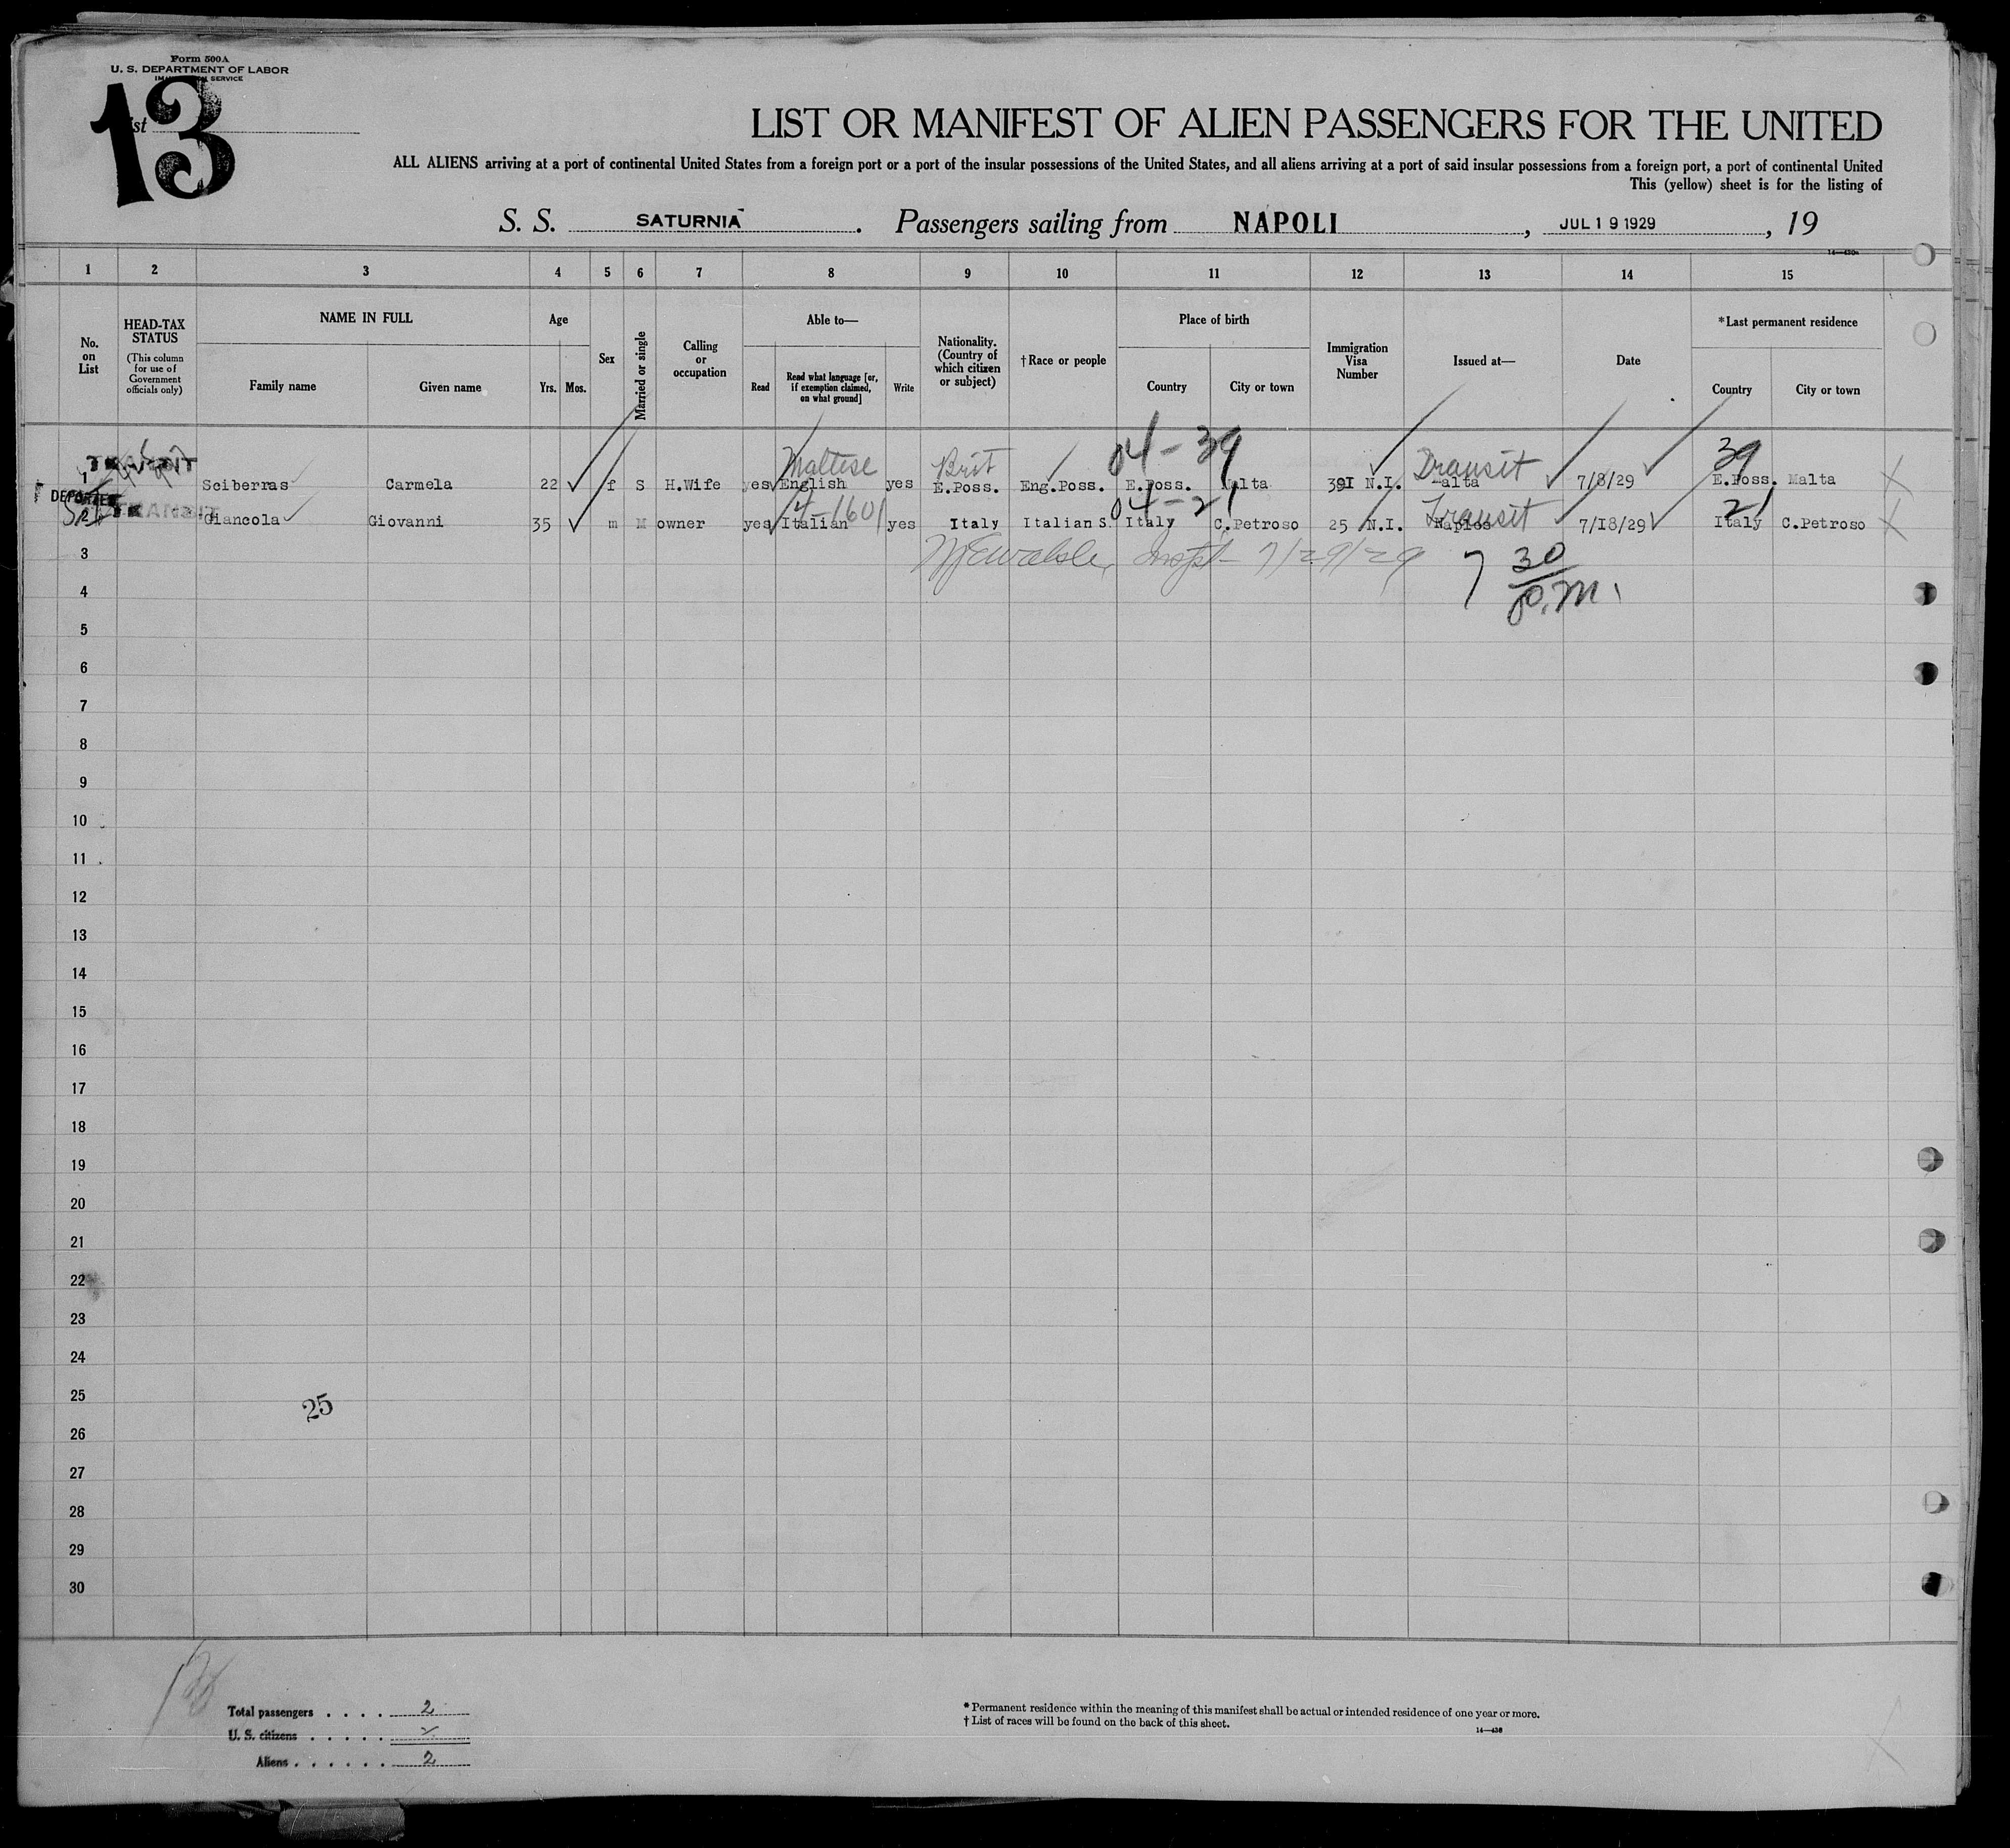 Form 500A
U. S. DEPARTMENT OF LABOR
SERVICE
13
LIST OR MANIFEST OF ALIEN PASSENGERS FOR THE UNITED
ALL ALIENS arriving at a port of continental United States from a foreign port or a port of the insular possessions of the United States, and all aliens arriving at a port of said insular possessions from a foreign port, a port of continental United
This (yellow) sheet is for the listing of
S. S. SATURNIA . Passengers sailing from NAPOLI , JUL 19 1929 , 19
1 2 3 4 5 6 7 8 9 10 11 12 13 14 15
No. on List
HEAD-TAX STATUS (This column for use of Government officials only)
NAME IN FULL
Family name Given name
Age
Yrs. Mos.
Sex
Married or single
Calling or occupation
Able to—
Read Read what language [or, if exemption claimed, on what ground] Write
Nationality. (Country of which citizen or subject)
†Race or people
Place of birth
Country City or town
Immigration Visa Number
Issued at—
Date
*Last permanent residence
Country City or town
TRANSIT Maltese Brit 04-39 Transit 39
1 Sciberras Carmela 22 f S H.Wife yes English yes E.Poss. Eng.Poss. E.Poss. Malta 391 N.I. Malta 7/8/29 E.Poss. Malta
DEPORTED TRANSIT 4-1601 04-21 Transit 21
Giancola Giovanni 35 m M owner yes Italian yes Italy Italian S. Italy C.Petroso 25 N.I. Naples 7/18/29 Italy C.Petroso
3 Inspt 7/29/29 7 30 p.m.
4
5
6
7
8
9
10
11
12
13
14
15
16
17
18
19
20
21
22
23
24
25
25
26
27
28
29
30
Total passengers . . . . 2
U. S. citizens . . . . .
Aliens . . . . . . 2
* Permanent residence within the meaning of this manifest shall be actual or intended residence of one year or more.
† List of races will be found on the back of this sheet.
14—430